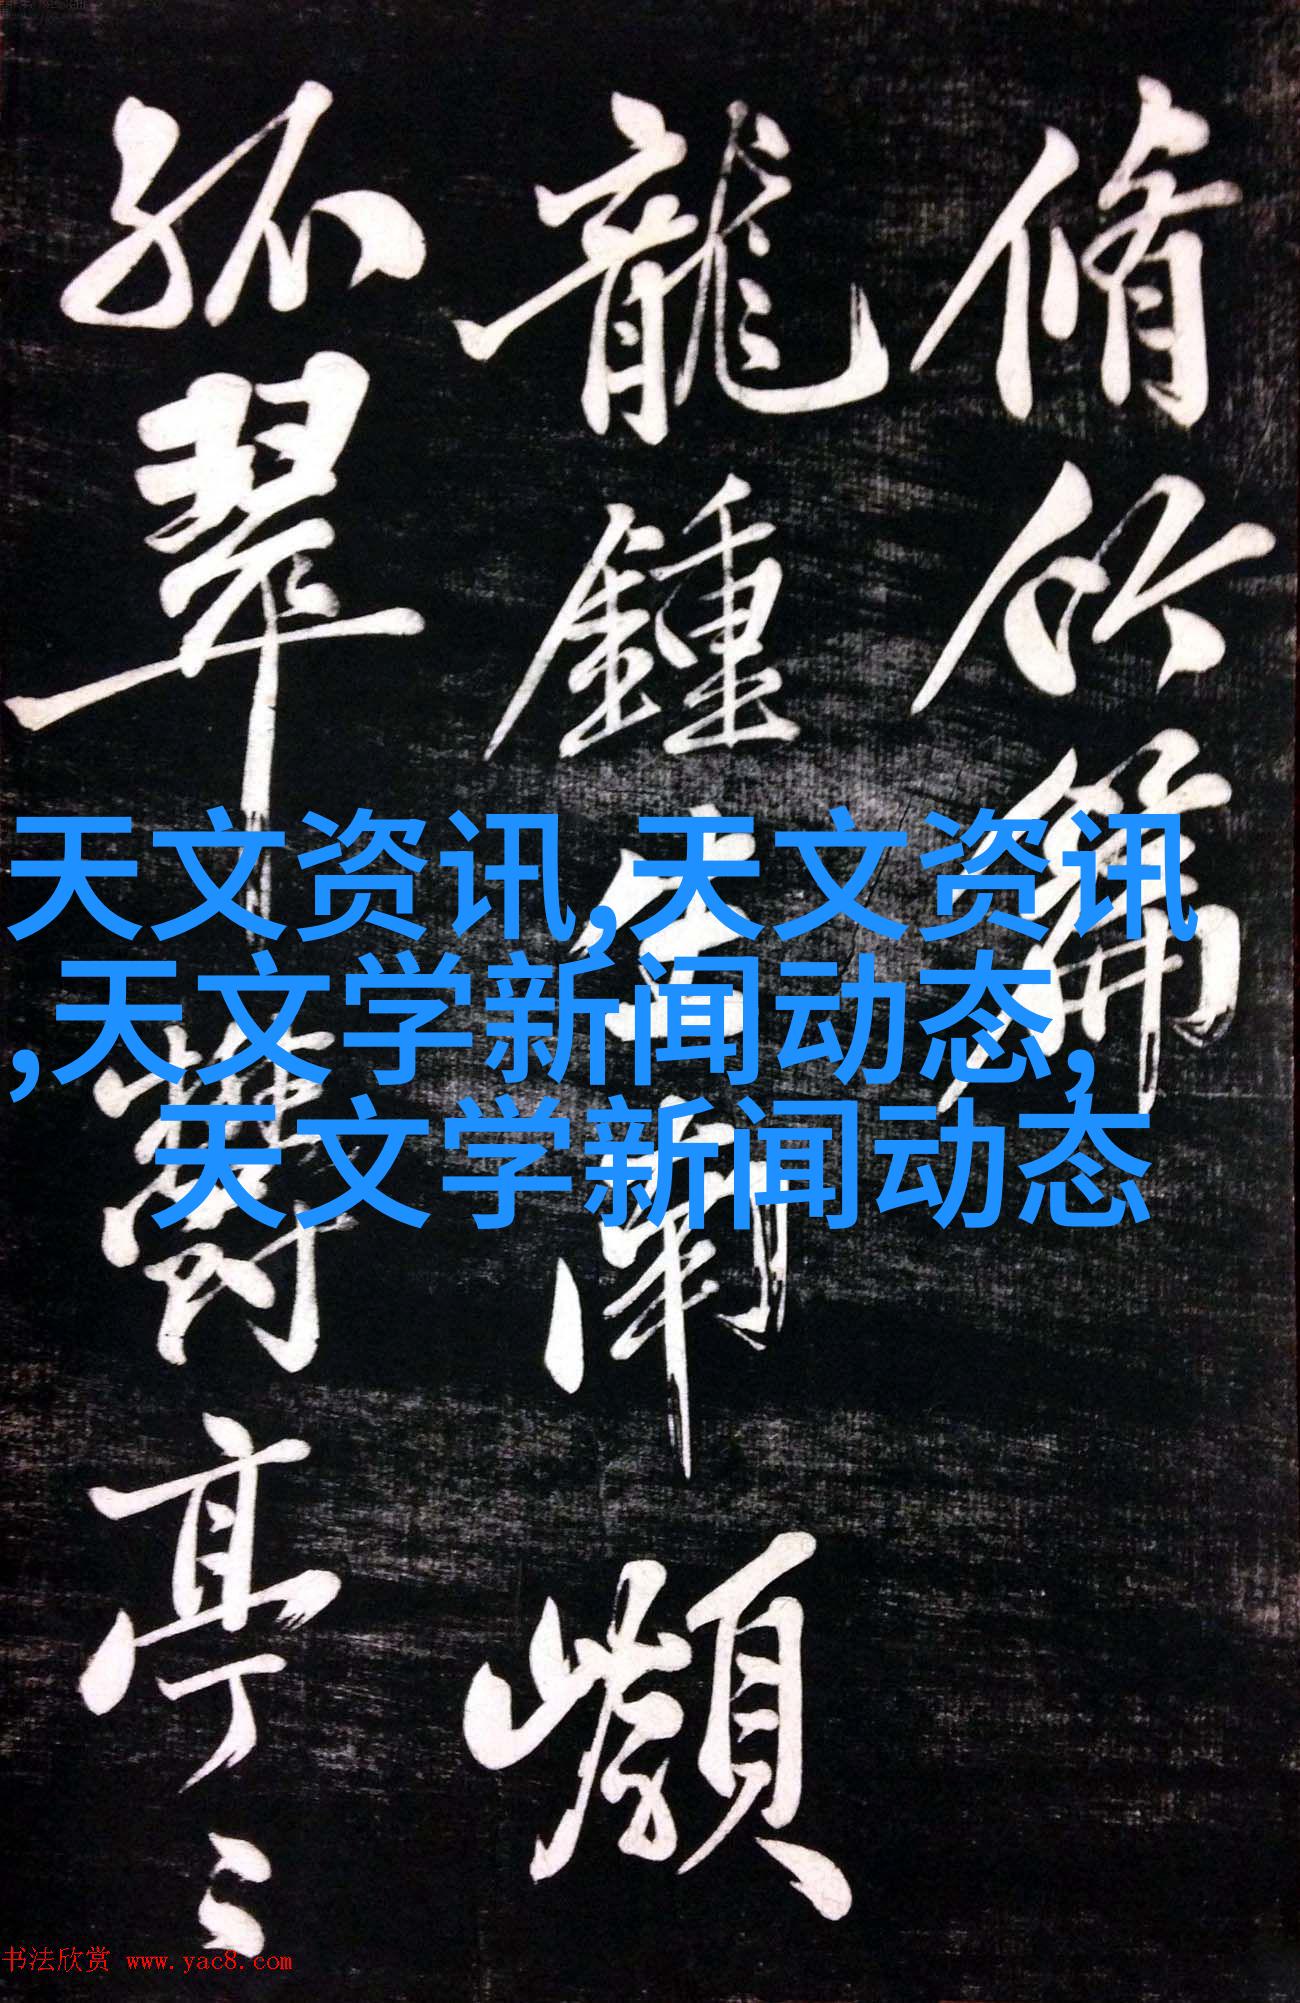 脩竹篇
龍鍾生南
孤翠鬱亭〻
天文资讯,天文资讯
,天文学新闻动态,
天文学新闻动态
书法欣赏 www.yac8.com